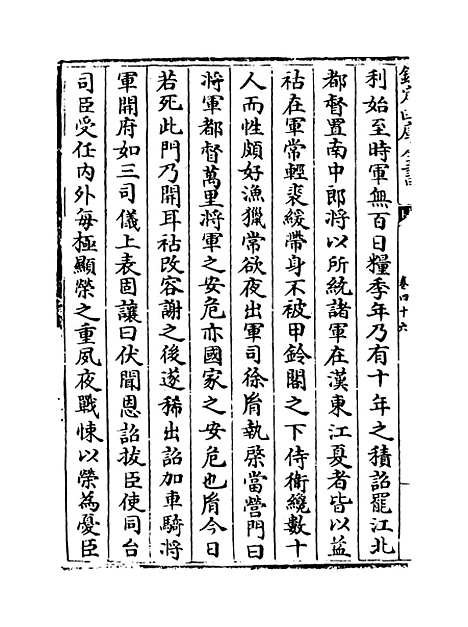 欽定四庫全書
卷四十六
利始至時軍無百日糧季年乃有十年之積詔罷江北
都督置南中郎將以所統諸軍在漢東江夏者皆以益
祜在軍常輕裘緩帶身不被甲鈴閣之下侍衛纔數十
人而性頗好漁獵常欲夜出軍司徐胤執棨當營門曰
將軍都督萬里將軍之安危亦國家之安危也胤今日
若死此門乃開耳祜改容謝之後遂稀出詔加車騎將
軍開府如三司儀上表固讓曰伏聞恩詔拔臣使同台
司臣受任内外每極顯榮之重夙夜戰悚以榮為憂臣